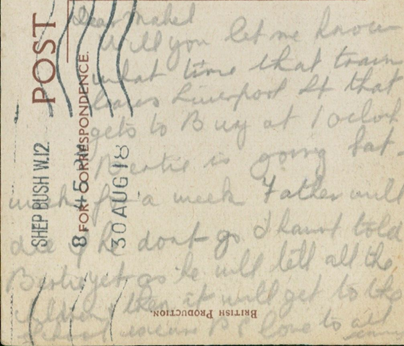 Dear Mabel
Will you let me know
what time that train
leaves Liverpool St that
gets to Bury at 1 oclock
Beatie is going Sat.
week for a week Father will
die if he dont go I havnt told
Bertie yet as he will tell all the
children then it will get to the
school excuse P.C. love to all
POST
FOR CORRESPONDENCE
SHEP BUSH W.12
8 45 PM
30 AUG 18
BRITISH PRODUCTION.